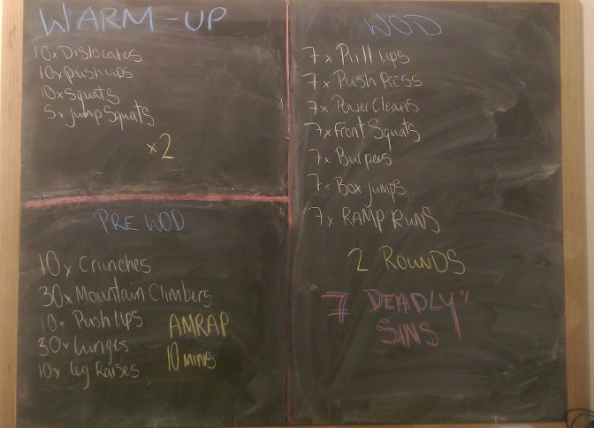 WARM-UP
10x Dislocates
10x push ups
10x Squats
5x Jump Squats
x2
PRE WOD
10x Crunches
30x Mountain Climbers
10x Push Ups
30x Lunges
10x Leg Raises
AMRAP
10 mins
WOD
7x Pull ups
7x Push Press
7x Power Cleans
7x Front Squats
7x Burpees
7x Box jumps
7x RAMP RUNS
2 ROUNDS
"7 DEADLY"
SINS